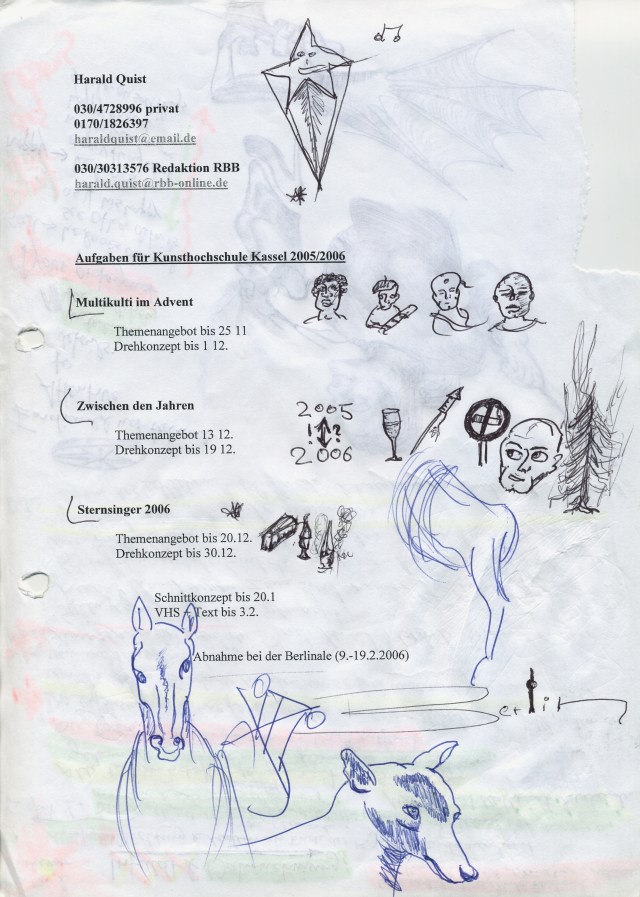 Harald Quist
030/4728996 privat
0170/1826397
haraldquist@email.de
030/30313576 Redaktion RBB
harald.quist@rbb-online.de
Aufgaben für Kunsthochschule Kassel 2005/2006
Multikulti im Advent
Themenangebot bis 25 11
Drehkonzept bis 1 12.
Zwischen den Jahren
Themenangebot 13 12.
Drehkonzept bis 19 12.
2005
! ?
2006
Sternsinger 2006
Themenangebot bis 20.12.
Drehkonzept bis 30.12.
Schnittkonzept bis 20.1
VHS + Text bis 3.2.
Abnahme bei der Berlinale (9.-19.2.2006)
Berlin